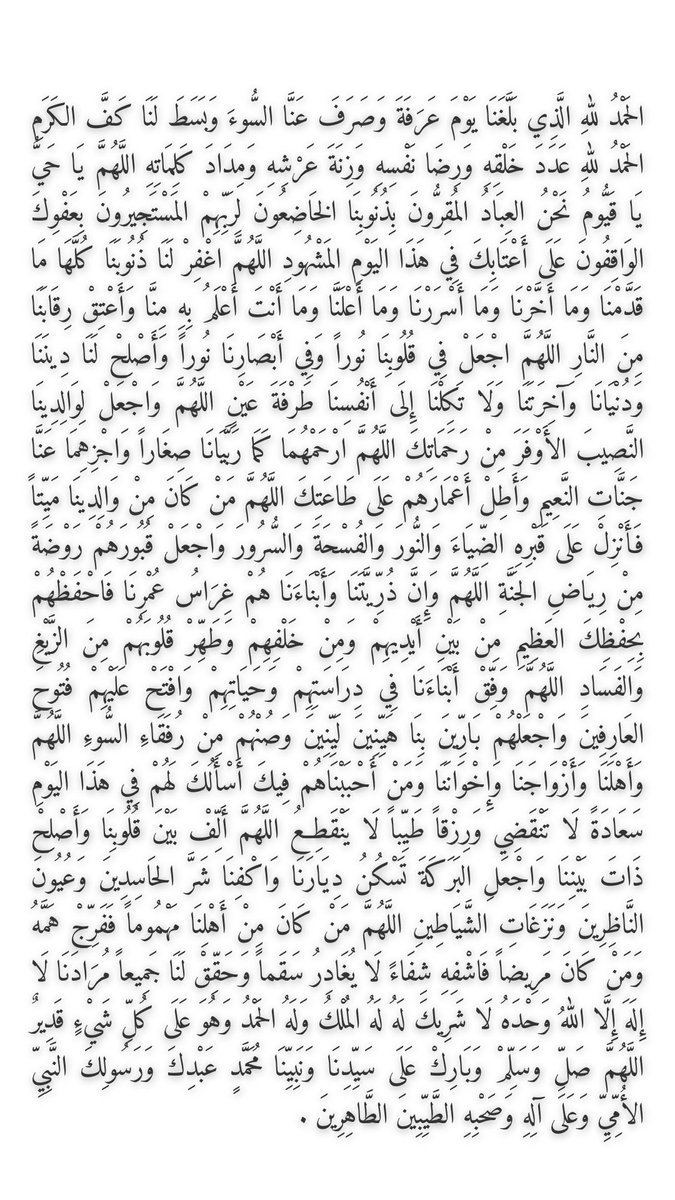 الحَمْدُ للهِ الَّذِي بَلَّغَنَا يَوْمَ عَرَفَةَ وَصَرَفَ عَنَّا السُّوءَ وَبَسَطَ لَنَا كَفَّ الكَرَمِ
الحَمْدُ للهِ عَدَدَ خَلْقِهِ وَرِضَا نَفْسِهِ وَزِنَةَ عَرْشِهِ وَمِدَادَ كَلِمَاتِهِ اللَّهُمَّ يَا حَيُّ
يَا قَيُّومُ نَحْنُ العِبَادُ المُقِرُّونَ بِذُنُوبِنَا الخَاضِعُونَ لِرَبِّهِمْ المُسْتَجِيرُونَ بِعَفْوِكَ
الوَاقِفُونَ عَلَى أَعْتَابِكَ فِي هَذَا اليَوْمِ المَشْهُودِ اللَّهُمَّ اغْفِرْ لَنَا ذُنُوبَنَا كُلَّهَا مَا
قَدَّمْنَا وَمَا أَخَّرْنَا وَمَا أَسْرَرْنَا وَمَا أَعْلَنَّا وَمَا أَنْتَ أَعْلَمُ بِهِ مِنَّا وَأَعْتِقْ رِقَابَنَا
مِنَ النَّارِ اللَّهُمَّ اجْعَلْ فِي قُلُوبِنَا نُوراً وَفِي أَبْصَارِنَا نُوراً وَأَصْلِحْ لَنَا دِينَنَا
وَدُنْيَانَا وَآخِرَتَنَا وَلَا تَكِلْنَا إِلَى أَنْفُسِنَا طَرْفَةَ عَيْنٍ اللَّهُمَّ وَاجْعَلْ لِوَالِدِينَا
النَّصِيبَ الأَوْفَرَ مِنْ رَحَمَاتِكَ اللَّهُمَّ ارْحَمْهُمَا كَمَا رَبَّيَانَا صِغَاراً وَاجْزِهِمَا عَنَّا
جَنَّاتِ النَّعِيمِ وَأَطِلْ أَعْمَارَهُمْ عَلَى طَاعَتِكَ اللَّهُمَّ مَنْ كَانَ مِنْ وَالِدِينَا مَيِّتاً
فَأَنْزِلْ عَلَى قَبْرِهِ الضِّيَاءَ وَالنُّورَ وَالفُسْحَةَ وَالسُّرُورَ وَاجْعَلْ قُبُورَهُم رَوْضَةً
مِنْ رِيَاضِ الجَنَّةِ اللَّهُمَّ وَإِنَّ ذُرِّيَّتَنَا وَأَبْنَاءَنَا هُمْ غِرَاسُ عُمْرِنَا فَاحْفَظْهُمْ
بِحِفْظِكَ العَظِيمِ مِنْ بَيْنِ أَيْدِيهِمْ وَمِنْ خَلْفِهِمْ وَطَهِّرْ قُلُوبَهُمْ مِنَ الزَّيْغِ
وَالفَسَادِ اللَّهُمَّ وَفِّقْ أَبْنَاءَنَا فِي دِرَاسَتِهِمْ وَحَيَاتِهِمْ وَافْتَحْ عَلَيْهِمْ فُتُوحَ
العَارِفِينَ وَاجْعَلْهُمْ بَارِّينَ بِنَا هَيِّنِينَ لَيِّنِينَ وَصُنْهُمْ مِنْ رُفَقَاءِ السُّوءِ اللَّهُمَّ
وَأَهْلَنَا وَأَزْوَاجَنَا وَإِخْوَانَنَا وَمَنْ أَحْبَبْنَاهُمْ فِيكَ أَسْأَلُكَ لَهُمْ فِي هَذَا اليَوْمِ
سَعَادَةً لَا تَنْقَضِي وَرِزْقاً طَيِّباً لَا يَنْقَطِعُ اللَّهُمَّ أَلِّفْ بَيْنَ قُلُوبِنَا وَأَصْلِحْ
ذَاتَ بَيْنِنَا وَاجْعَلِ البَرَكَةَ تَسْكُنُ دِيَارَنَا وَاكْفِنَا شَرَّ الحَاسِدِينَ وَعُيُونَ
النَّاظِرِينَ وَنَزَغَاتِ الشَّيَاطِينِ اللَّهُمَّ مَنْ كَانَ مِنْ أَهْلِنَا مَهْمُوماً فَفَرِّجْ هَمَّهُ
وَمَنْ كَانَ مَرِيضاً فَاشْفِهِ شِفَاءً لَا يُغَادِرُ سَقَماً وَحَقِّقْ لَنَا جَمِيعاً مُرَادَنَا لَا
إِلَهَ إِلَّا اللهُ وَحْدَهُ لَا شَرِيكَ لَهُ لَهُ المُلْكُ وَلَهُ الحَمْدُ وَهُوَ عَلَى كُلِّ شَيْءٍ قَدِيرٌ
اللَّهُمَّ صَلِّ وَسَلِّمْ وَبَارِكْ عَلَى سَيِّدِنَا وَنَبِيِّنَا مُحَمَّدٍ عَبْدِكَ وَرَسُولِكَ النَّبِيِّ
الأُمِّيِّ وَعَلَى آلِهِ وَصَحْبِهِ الطَّيِّبِينَ الطَّاهِرِينَ .